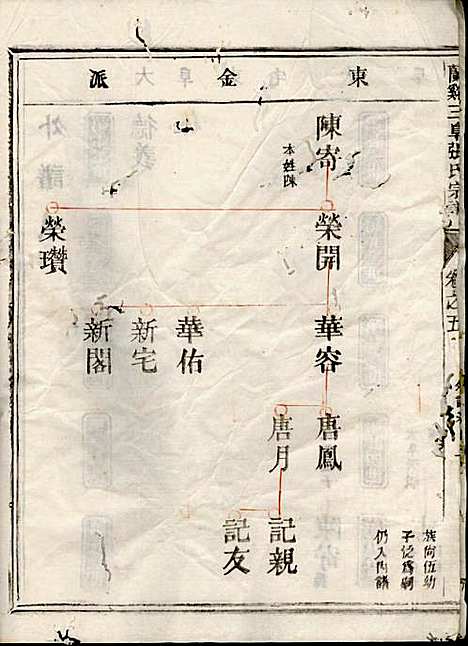 東金派
陳寄
本姓陳
榮開
榮瓚
華容
華佑
新宅
新閣
唐鳳
唐月
記親
記友
族向伍幼
子泛爲嗣
仍入內譜
蘭谿三阜張氏宗
卷之五